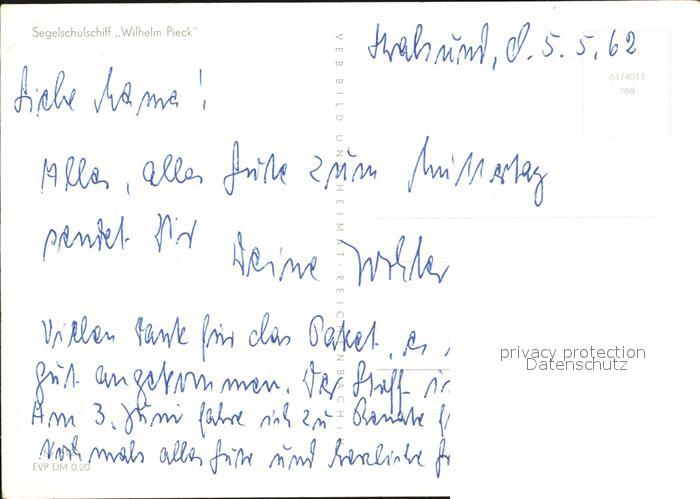 Segelschulschiff „Wilhelm Pieck"
Stralsund, d. 5.5.62
61/4011
788
Liebe Mama!
Alles, alles Gute zum Muttertag
sendet Dir Deine Tochter
Vielen Dank für das Paket, es
gut angekommen. Der Stoff
Am 3. Juni fahre ich zu Renate
Nochmals alles Gute und herzliche
EVP DM 0,20
VEB BILD UND HEIMAT REICHENBACH
privacy protection
Datenschutz